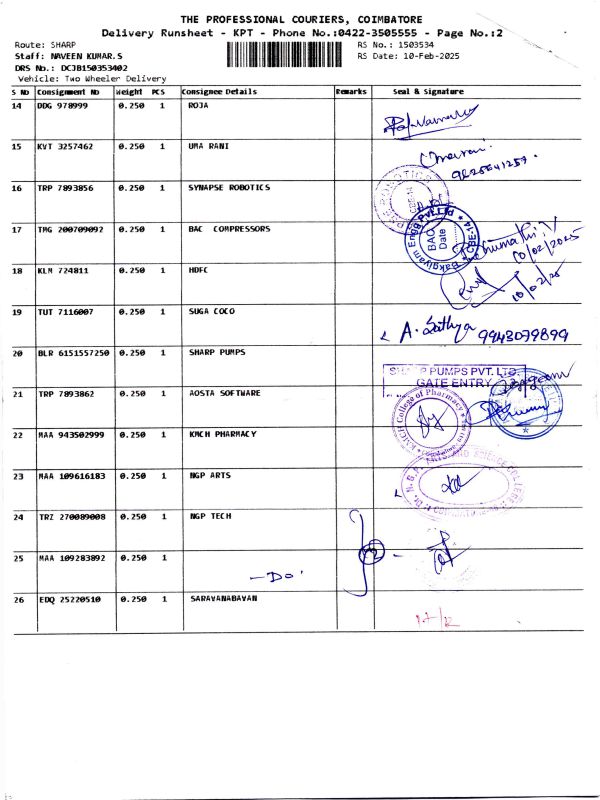 THE PROFESSIONAL COURIERS, COIMBATORE
Delivery Runsheet - KPT - Phone No.:0422-3505555 - Page No.:2
Route: SHARP RS No.: 1503534
Staff: NAVEEN KUMAR.S RS Date: 10-Feb-2025
DRS No.: DCJB150353402
Vehicle: Two Wheeler Delivery
S No Consignment No Weight PCS Consignee Details Remarks Seal & Signature
14 DDG 978999 0.250 1 ROJA
15 KVT 3257462 0.250 1 UMA RANI
16 TRP 7893856 0.250 1 SYNAPSE ROBOTICS
ROBOTICS
17 TMG 200709092 0.250 1 BAC COMPRESSORS
Bakgiyam Engg Pvt.Ltd
BAC
Date
CBE-14
10/02/2025
18 KLM 724811 0.250 1 HDFC
10/02/25
19 TUT 7116007 0.250 1 SUGA COCO
A. Sathya 9943079899
20 BLR 6151557250 0.250 1 SHARP PUMPS
SHARP PUMPS PVT. LTD.
GATE ENTRY
21 TRP 7893862 0.250 1 AOSTA SOFTWARE
KMCH College of Pharmacy
22 MAA 943502999 0.250 1 KMCH PHARMACY
23 MAA 109616183 0.250 1 NGP ARTS
ARTS AND SCIENCE COLLEGE
24 TRZ 270089008 0.250 1 NGP TECH
2
25 MAA 109283892 0.250 1
- Do '
26 EDQ 25220510 0.250 1 SARAVANABAVAN